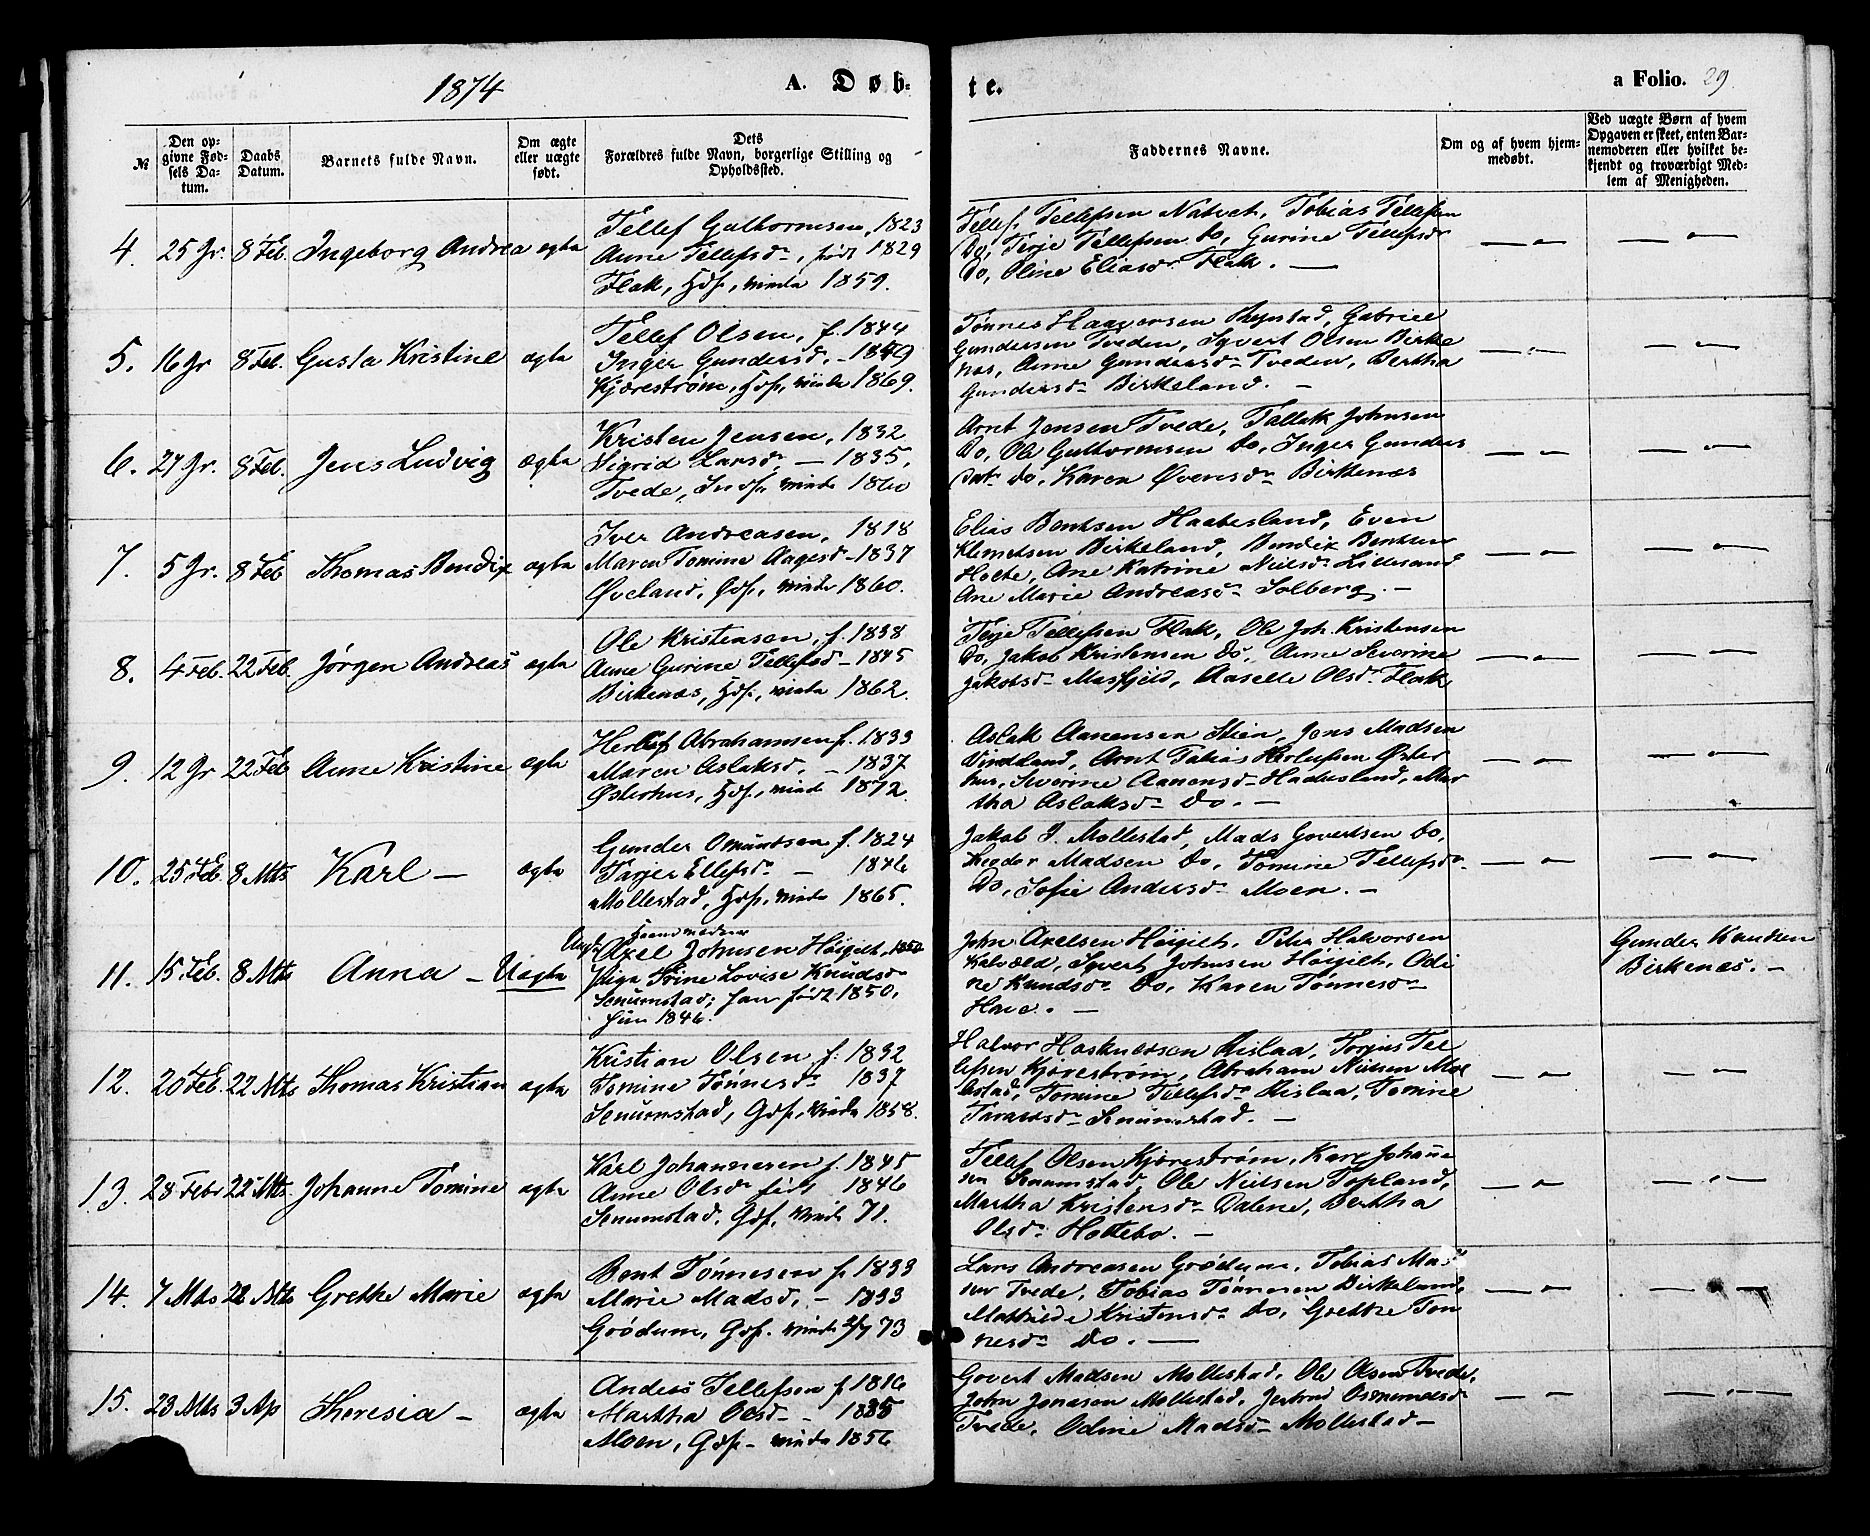 1874
A. Døb-
te.
a Folio. 29
№
Den op-
givne Fød-
sels Da-
tum.
Daabs
Datum.
Barnets fulde Navn.
Om ægte
eller uægte
født.
Dets
Forældres fulde Navn, borgerlige Stilling og
Opholdssted.
Faddernes Navne.
Om og af hvem hjem-
medøbt.
Ved uægte Børn af hvem
Opgaven er skeet, enten Bar-
nemoderen eller hvilket be-
kjendt og troværdigt Med-
lem af Menigheden.
4. 25 Jr. 8 Feb. Ingeborg Andrea ægte
Tellef Guthormsen, 1823
Anne Tellefsdr, født 1829
Flak, Gdf, viede 1859.
Tellef Tellefsen Natvet, Tobias Tellefsen
Do, Terje Tellefsen do, Gurine Tellefsdr
do, Oline Eliasdr Flak. —
5. 16 Jr 8 Feb. Gusta Kristine ægte
Tellef Olsen, f. 1844
Inger Gundersd. - 1849
Kjærestrøm, Gdf, viede 1869.
Tønnes Haaversen Repstad, Gabriel
Gundersen Tveden, Syvert Olsen Birke
næs, Anne Gundersdr Tveden, Bertha
Gundersdr Birkeland. —
6. 27 Jr. 8 Feb. Jens Ludvig ægte
Kristen Jensen, 1832
Sigrid Larsdr, — 1835,
Tvede, Indf, viede 1860
Arnt Jensen Tvede, Tallak Johnsen
Do, Ole Guthormsen do, Inger Gunders
datr do, Karen Øvensdr Birkenæs
7. 5 Jr. 8 Feb Thomas Bendix ægte
Iver Andreasen, 1818
Maren Tomine Aagesd - 1837
Øveland, Gdf, viede 1860.
Elias Bentsen Haabesland, Even
Klemetsen Birkeland, Bendix Bentsen
Holte, Ane Katrine Nielsdr Lillesand
Ane Marie Andreasdr Solberg. —
8. 4 Feb. 22 Feb. Jørgen Andreas ægte
Ole Kristensen, f. 1838
Anne Gurine Tellefsd - 1845
Birkenæs, Gdf, viede 1862.
Terje Tellefsen Flak, Ole Joh. Kristensen
do, Jakob Kristensen do, Anne Severine
Jakobsdr Masfjeld, Aaselle Olsdr Flak
9. 12 Jr 22 Feb Anne Kristine ægte
Herlef Abrahamsen f. 1833
Maren Aslaksd, - 1837
Østerhus, Gdf, viede 1872.
Aslak Aanensen Stien, Jens Madsen
Vindland, Arnt Tobias Herlufsen Øster
hus, Severine Aanensdr Hadesland, Mar
tha Aslaksdr do. —
10. 25 Feb. 8 Mts Karl — ægte
Gunder Omundsen f. 1824
Tarjer Ellefsdr — 1846
Mollestad, Gdf, viede 1865.
Jakob J. Mollestad, Mads Govertsen do,
Madsen do, Tomine Tellefsdr
Do, Sofie Andersdr Moen. —
11. 15 Feb. 8 Mts Anna — Uægte
Axel Johnsen Høigilt, 1850
Pige Trine Lovise Knudsdr
Senumstad; han født 1850,
hun 1846.
John Axelsen Høigilt, Peter Halvorsen
Kalvæld, Syvert Johnsen Høigilt, Odi
ne Kundsdr do, Karen Tønnesdr
Have. —
Gunder Knudsen
Birkenæs. —
12. 20 Feb. 22 Mts Thomas Kristian ægte
Kristian Olsen f. 1832
Tomine Tønnesdr 1837
Senumstad, Gdf, viede 1858.
Halvor Haaknudsen Rislaa, Torjus Tel
lefsen Kjærestrøm, Abraham Nielsen Mol
lestad, Tomine Tellefsdr Rislaa, Tomine
Taraldsdr Senumstad. —
13. 28 Febr 22 Mts. Johanne Tomine ægte
Karl Johannesen f. 1845
Anne Olsdr født 1846
Senumstad, Gdf, viede 71.
Tellef Olsen Kjærestrøm, Karl Johanne
sen Senumstad, Ole Nielsen Topland,
Martha Kristensdr Dalene, Bertha
Olsdr Hottebo. —
14. 7 Mts 22 Mts Grethe Marie ægte
Bent Tønnesen f. 1833
Marie Madsd, - 1833
Grødum, Gdf. viede 2/7 73
Lars Andreasen Grødum, Tobias Mad
sen Tvede, Tobias Tønnesen Birkeland,
Mathilde Kristensdr do, Grethe Tøn
nesdr do. —
15. 23 Mts 3 Ap Theresia — ægte
Anders Tellefsen f. 1816
Martha Olsd — 1835
Moen, Gdf — viede 1856
Govert Madsen Mollestad, Ole Olsen Tvede,
John Jonasen Mollestad, Jertrud Osmundsdr
Tvede, Odine Madsdr Mollestad —